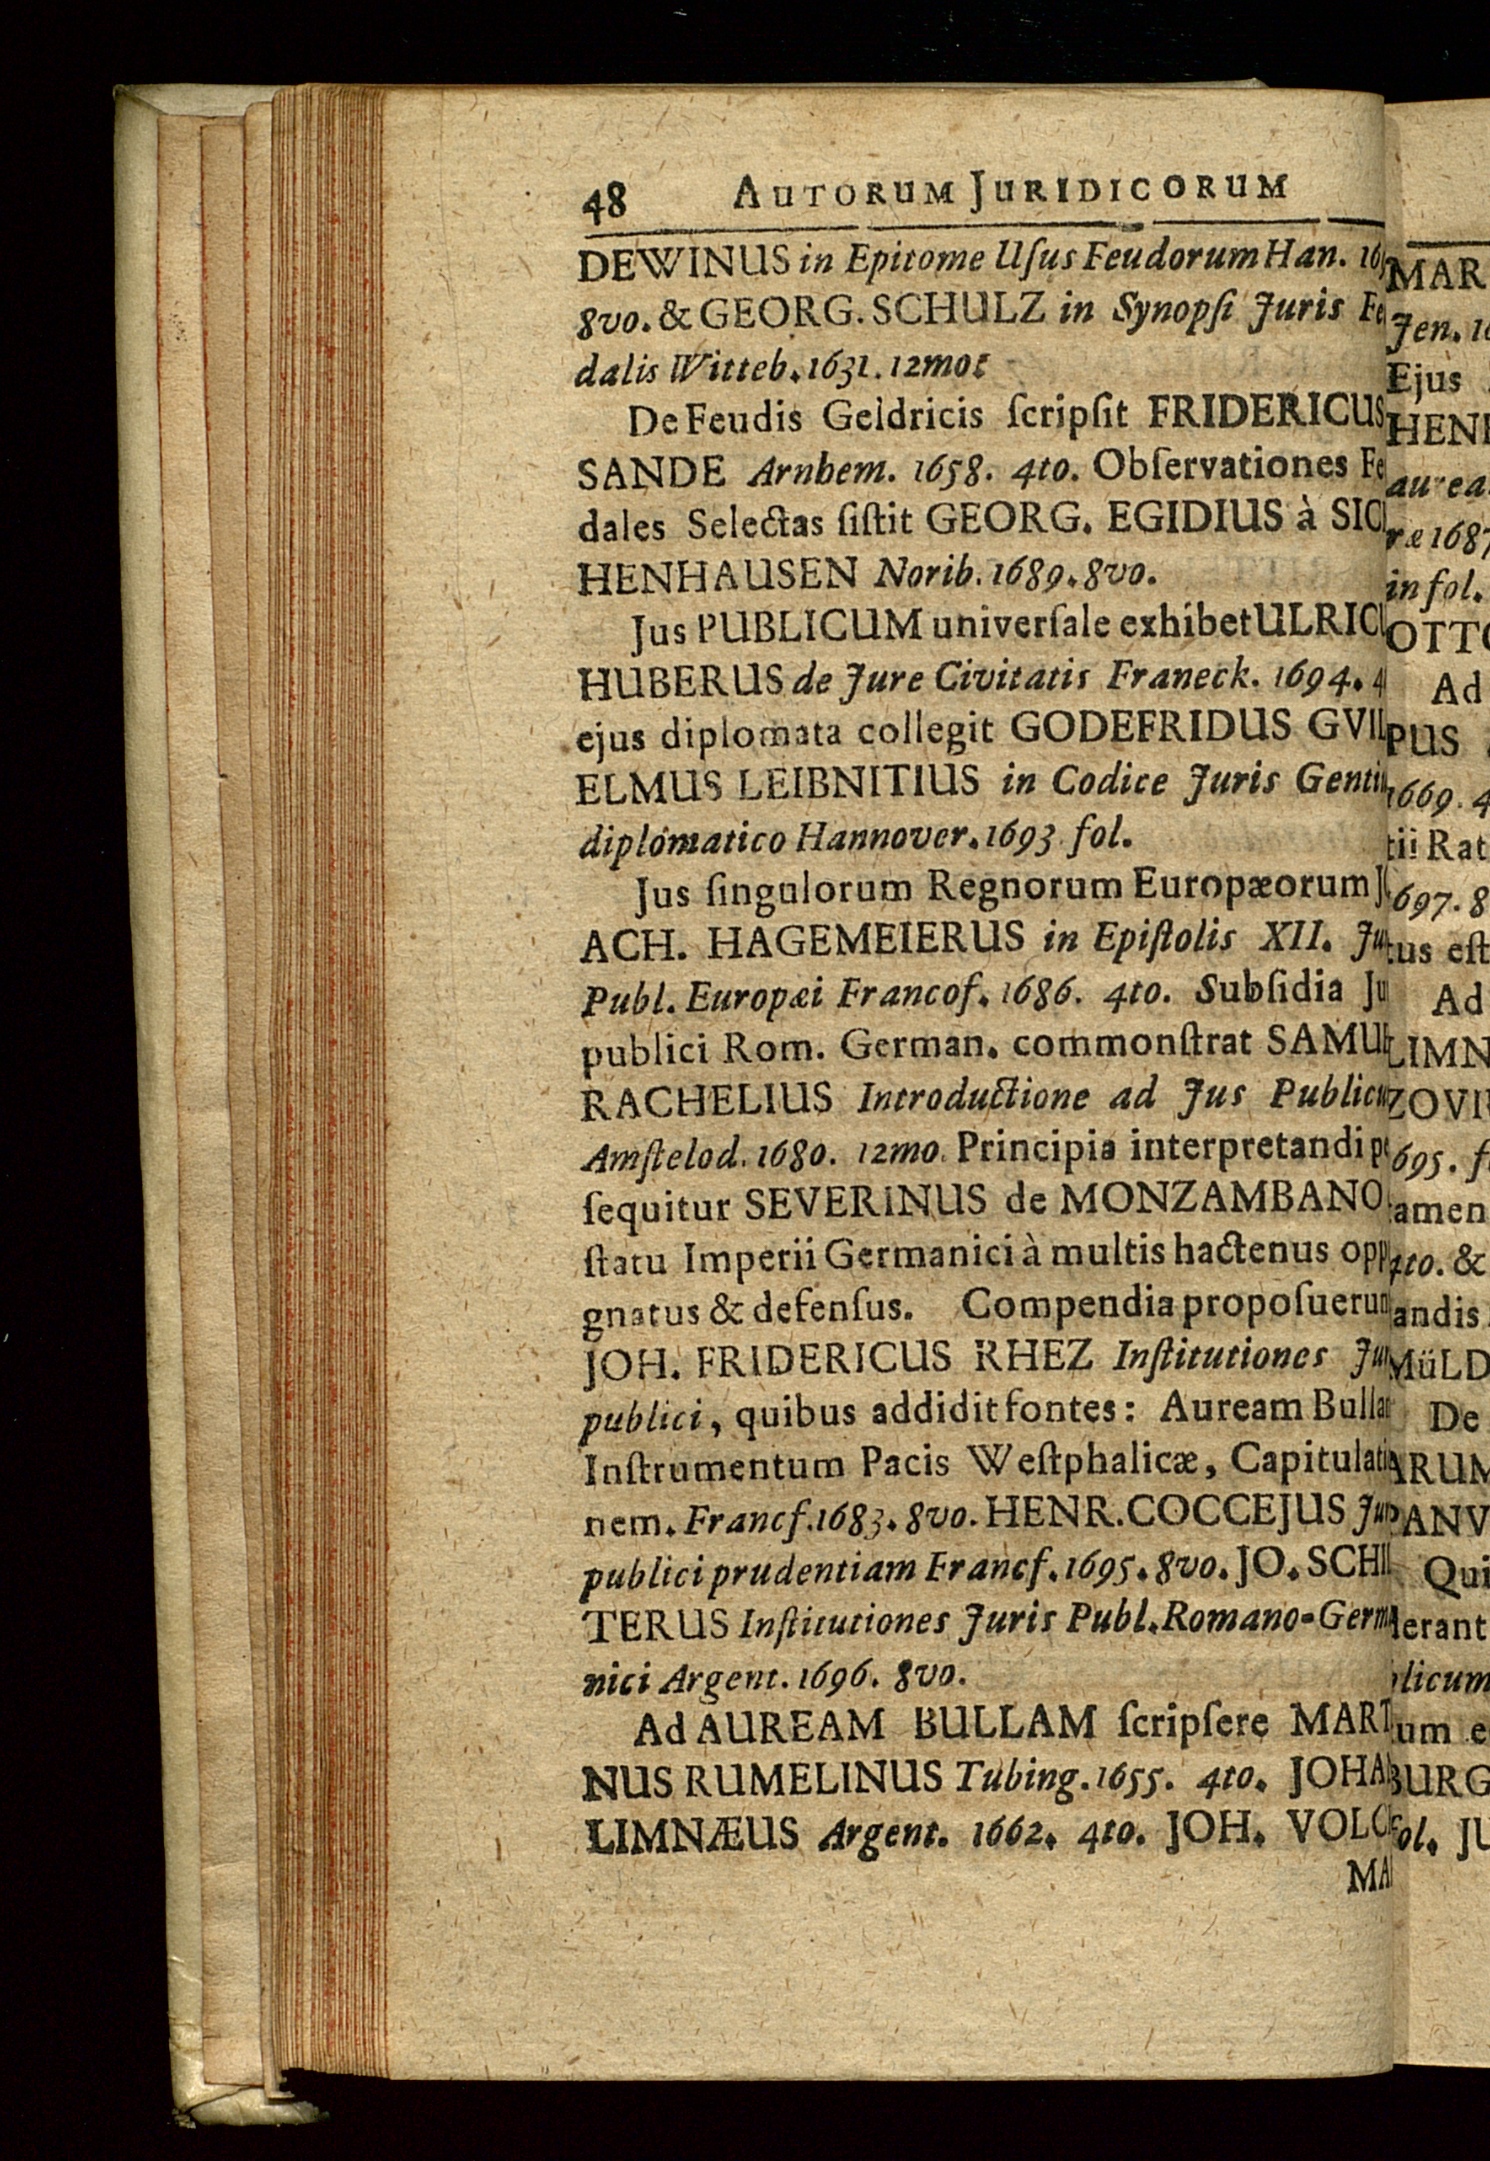 48 AUTORUM JURIDICORUM
DEWINUS in Epitome Uſus Feudorum Han.
8vo. & GEORG. SCHULZ in Synopſi Juris Fe
dalis Witteb. 1631. 12mo:
De Feudis Geldricis ſcripſit FRIDERICUS
SANDE Arnhem. 1658. 4to. Obſervationes Fe
dales Selectas ſiſtit GEORG. EGIDIUS à SIC
HENHAUSEN Norib. 1689. 8vo.
Jus PUBLICUM univerſale exhibet ULRICU
HUBERUS de Jure Civitatis Franeck. 1694. 4
ejus diplomata collegit GODEFRIDUS GVIL
ELMUS LEIBNITIUS in Codice Juris Gentiu
diplomatico Hannover. 1693 fol.
Jus ſingulorum Regnorum Europæorum JO
ACH. HAGEMEIERUS in Epiſtolis XII. Ju
Publ. Europæi Francof. 1686. 4to. Subſidia Ju
publici Rom. German. commonſtrat SAMUE
RACHELIUS Introductione ad Jus Publicu
Amſtelod. 1680. 12mo. Principia interpretandi pe
ſequitur SEVERINUS de MONZAMBANO
ſtatu Imperii Germanici à multis hactenus opp
gnatus & defenſus. Compendia propoſuerun
JOH. FRIDERICUS RHEZ Inſtitutiones Jur
publici, quibus addidit fontes: Auream Bullam
Inſtrumentum Pacis Weſtphalicæ, Capitulatio
nem. Francf. 1683. 8vo. HENR. COCCEJUS Jur
publici prudentiam Francf. 1695. 8vo. JO. SCHIL
TERUS Inſtitutiones Juris Publ. Romano-Germa
nici Argent. 1696. 8vo.
Ad AUREAM BULLAM ſcripſere MARTI
NUS RUMELINUS Tubing. 1655. 4to. JOHA
LIMNÆUS Argent. 1662. 4to. JOH. VOLC
MA
MAR
Jen.
Ejus
HEN
aurea
ræ 1687
in fol.
OTTO
Ad
PUS
1669. 4
tii Rat
697. 8
tus eſt
Ad
LIMN
ZOVI
695.
amen
4to. &
andis
MüLD
De
ARUM
PANV
Qui
erant
licum
um e
BURG
fol. JU